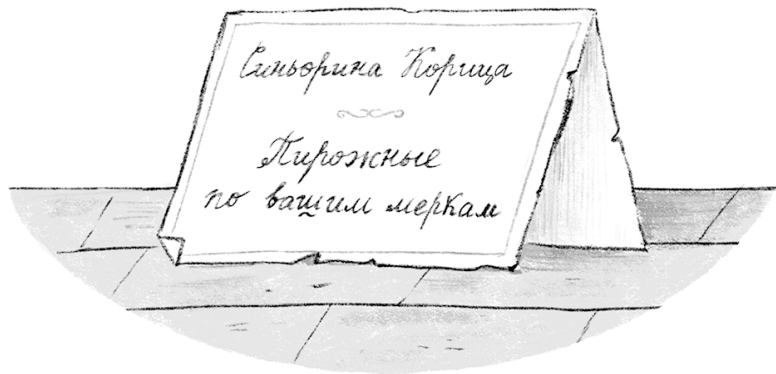 Синьорина Корица
Пирожные
по вашим меркам